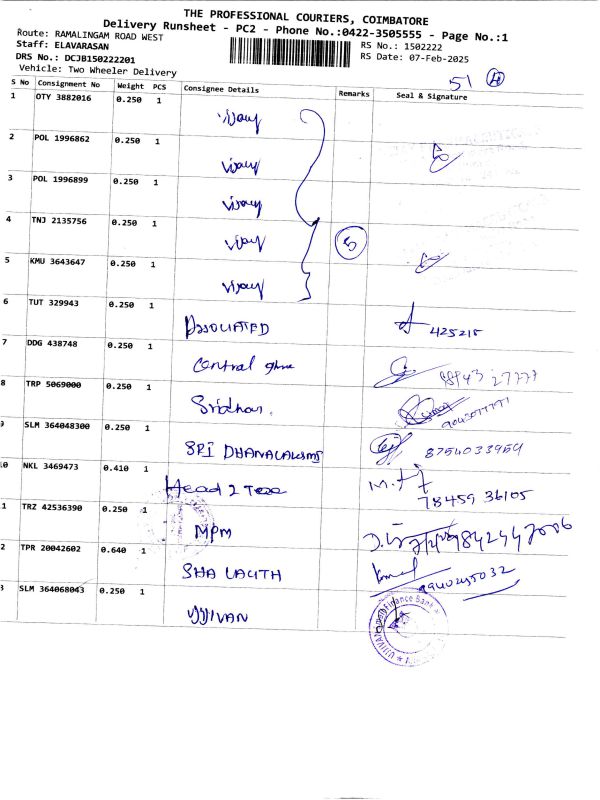 THE PROFESSIONAL COURIERS, COIMBATORE
Delivery Runsheet - PC2 - Phone No.:0422-3505555 - Page No.:1
Route: RAMALINGAM ROAD WEST
RS No.: 1502222
Staff: ELAVARASAN
RS Date: 07-Feb-2025
DRS No.: DCJB150222201
Vehicle: Two Wheeler Delivery
51
S No Consignment No Weight PCS Consignee Details Remarks Seal & Signature
1 OTY 3882016 0.250 1 vijay
2 POL 1996862 0.250 1 vijay
3 POL 1996899 0.250 1 vijay
4 TNJ 2135756 0.250 1 vijay 5
5 KMU 3643647 0.250 1 vijay
6 TUT 329943 0.250 1 ASSOCIATED 425215
7 DDG 438748 0.250 1 Central
8 TRP 5069000 0.250 1 Sridhar
9 SLM 364048300 0.250 1 SRI DHANALAKSMI 8754033959
10 NKL 3469473 0.410 1 Head 2 Toe 78459 36105
1 TRZ 42536390 0.250 1 MPM
2 TPR 20042602 0.640 1 SHA LALITH
3 SLM 364068043 0.250 1 UJJIVAN
Finance Bank